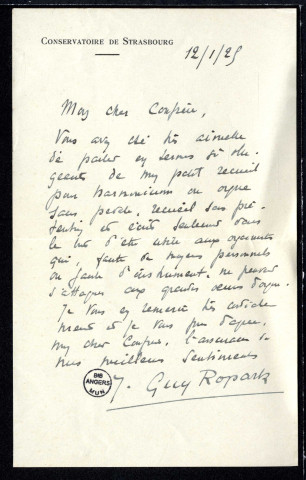 CONSERVATOIRE DE STRASBOURG
12/1/25
Mon cher Confrère,
Vous avez été très aimable
de parler en termes si obli-
geants de mon petit recueil
pour harmonium ou orgue
sans pédale, recueil sans pré-
tention et écrit seulement dans
le but d'être utile aux organistes
qui, faute de moyens personnels
ou faute d'instrument, ne peuvent
s'attaquer aux grandes œuvres d'orgue.
Je vous en remercie très
et je vous prie d'agréer,
mon cher Confrère, l'assurance de
mes meilleurs sentiments
J. Guy Ropartz
BIB
ANGERS
MUN